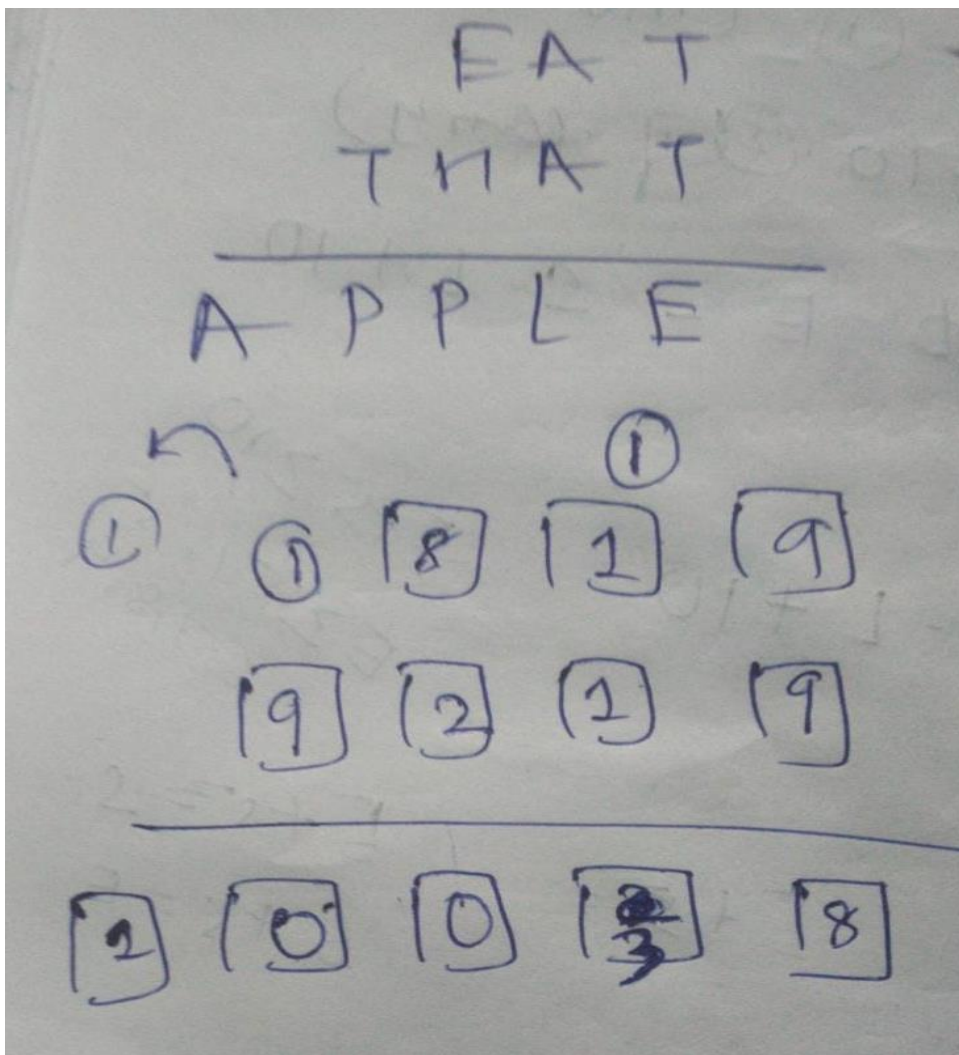 E A T
T H A T
A P P L E
①
① ① 8 1 9
9 2 1 9
1 0 0 3 8